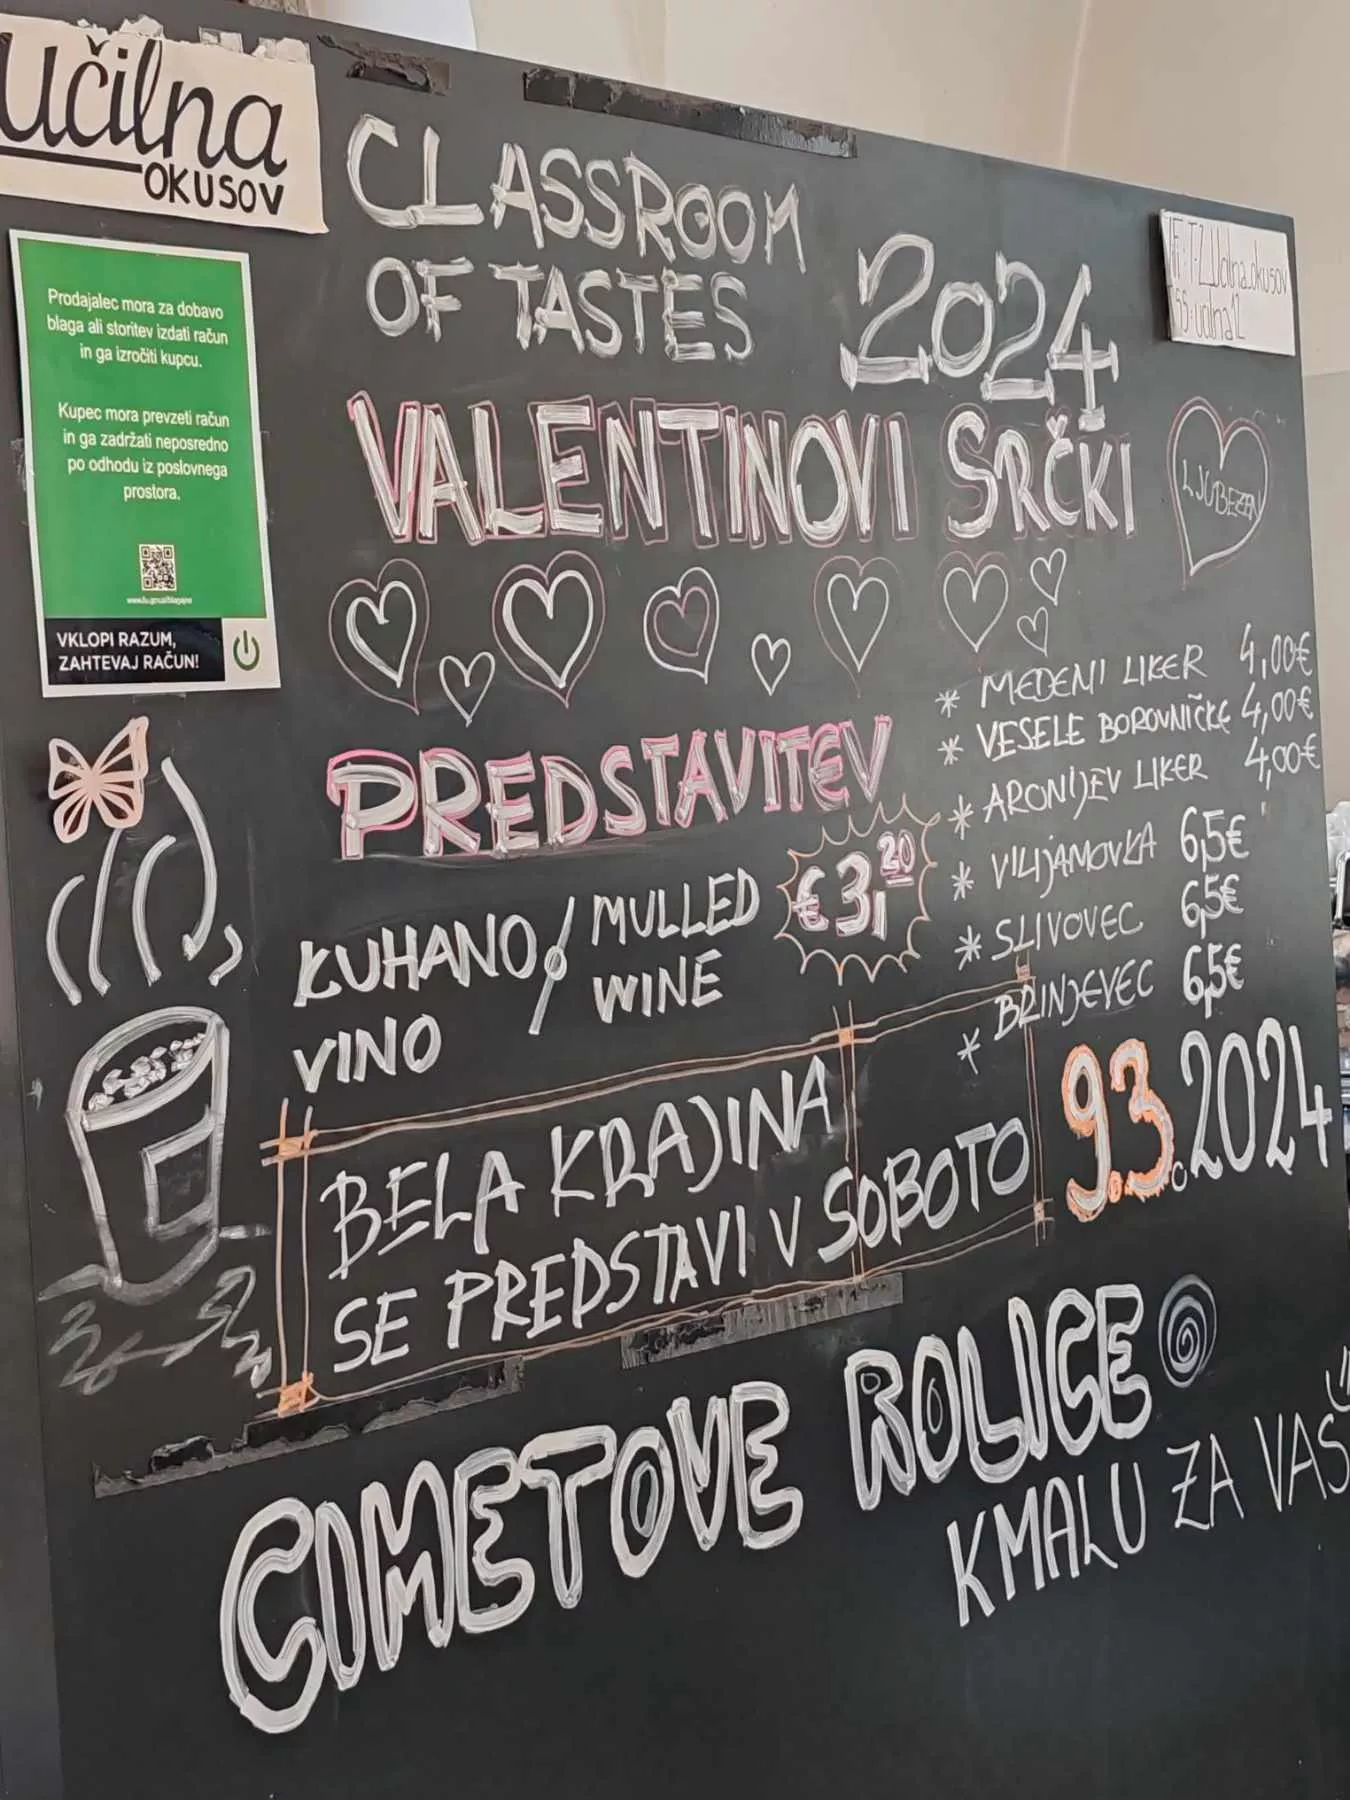 učilna
OKUSOV
CLASSROOM
OF TASTES
2024
VALENTINOVI SRČKI
LJUBEZEN
Prodajalec mora za dobavo
blaga ali storitev izdati račun
in ga izročiti kupcu.
Kupec mora prevzeti račun
in ga zadržati neposredno
po odhodu iz poslovnega
prostora.
VKLOPI RAZUM,
ZAHTEVAJ RAČUN!
PREDSTAVITEV
* MEDENI LIKER 4,00€
* VESELE BOROVNIČKE 4,00€
* ARONIJEV LIKER 4,00€
* VILIJAMOVKA 6,5€
* SLIVOVEC 6,5€
* BRINJEVEC 6,5€
KUHANO / MULLED € 3,20
VINO WINE
BELA KRAJINA
SE PREDSTAVI V SOBOTO 9.3.2024
CIMETOVE ROLICE
KMALU ZA VAS